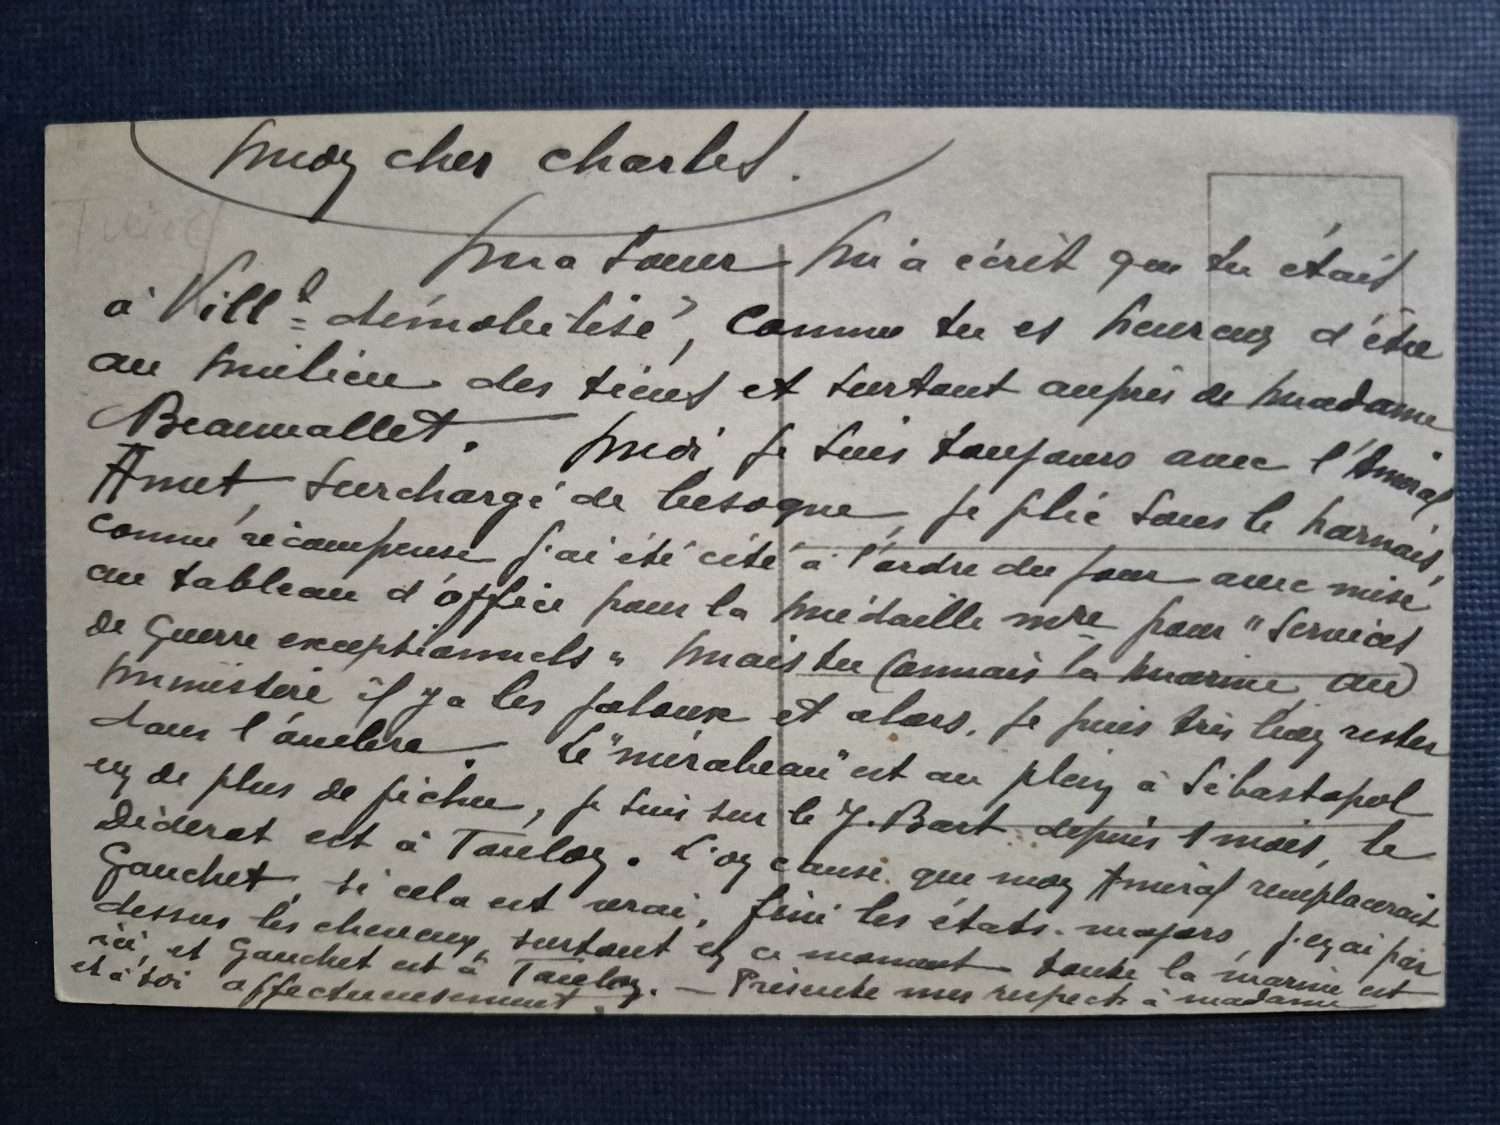 mon cher charles.
ma soeur m'a écrit que tu étais
à Vill^e démobilisé, comme tu es heureux d'être
au milieu des tiens et surtout auprès de madame
Beauvallet. moi, je suis toujours avec l'Amiral
Amet, surchargé de besogne, je plie sous le harnais,
comme récompense j'ai été cité à l'ordre du jour avec mise
au tableau d'office pour la médaille mre pour "services
de guerre exceptionnels" mais tu connais la marine, au
ministère il y a les jaloux et alors, je puis très bien rester
dans l'ombre. Le "mirabeau" est au plein à Sébastopol
en de plus de fichu, je suis sur le J. Bart depuis 1 mois, le
Diderot est à Toulon. L'on cause que mon Amiral remplacerait
Gauchet, si cela est vrai, fini les états-majors, j'en ai par
dessus les cheveux, surtout en ce moment toute la marine est
ici, et Gauchet est à Toulon. — Présente mes respects à madame
et à toi affectueusement.